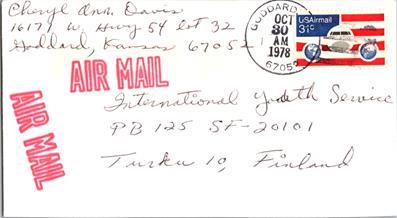 Cheryl Ann Davis
16171 W. Hwy 54 Lot 32
Goddard, Kansas 67052
GODDARD
OCT
30
AM
1978
67052
USAirmail
31c
AIR MAIL
AIR MAIL
International Youth Service
PB 125 SF-20101
Turku 10, Finland